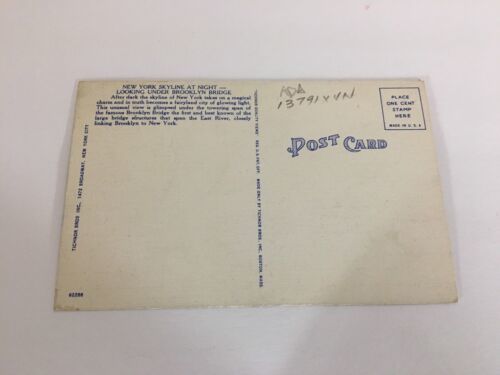 NEW YORK SKYLINE AT NIGHT —
LOOKING UNDER BROOKLYN BRIDGE
After dark the skyline of New York takes on a magical
charm and in truth becomes a fairyland city of glowing light.
This unusual view is glimpsed under the towering span of
the famous Brooklyn Bridge the first and best known of the
large bridge structures that span the East River, closely
linking Brooklyn to New York.
TICHNOR BROS INC., 1472 BROADWAY, NEW YORK CITY
62288
"TICHNOR QUALITY VIEWS" REG. U. S. PAT. OFF. MADE ONLY BY TICHNOR BROS., INC. BOSTON, MASS.
13791
POST CARD
PLACE
ONE CENT
STAMP
HERE
MADE IN U. S. A.